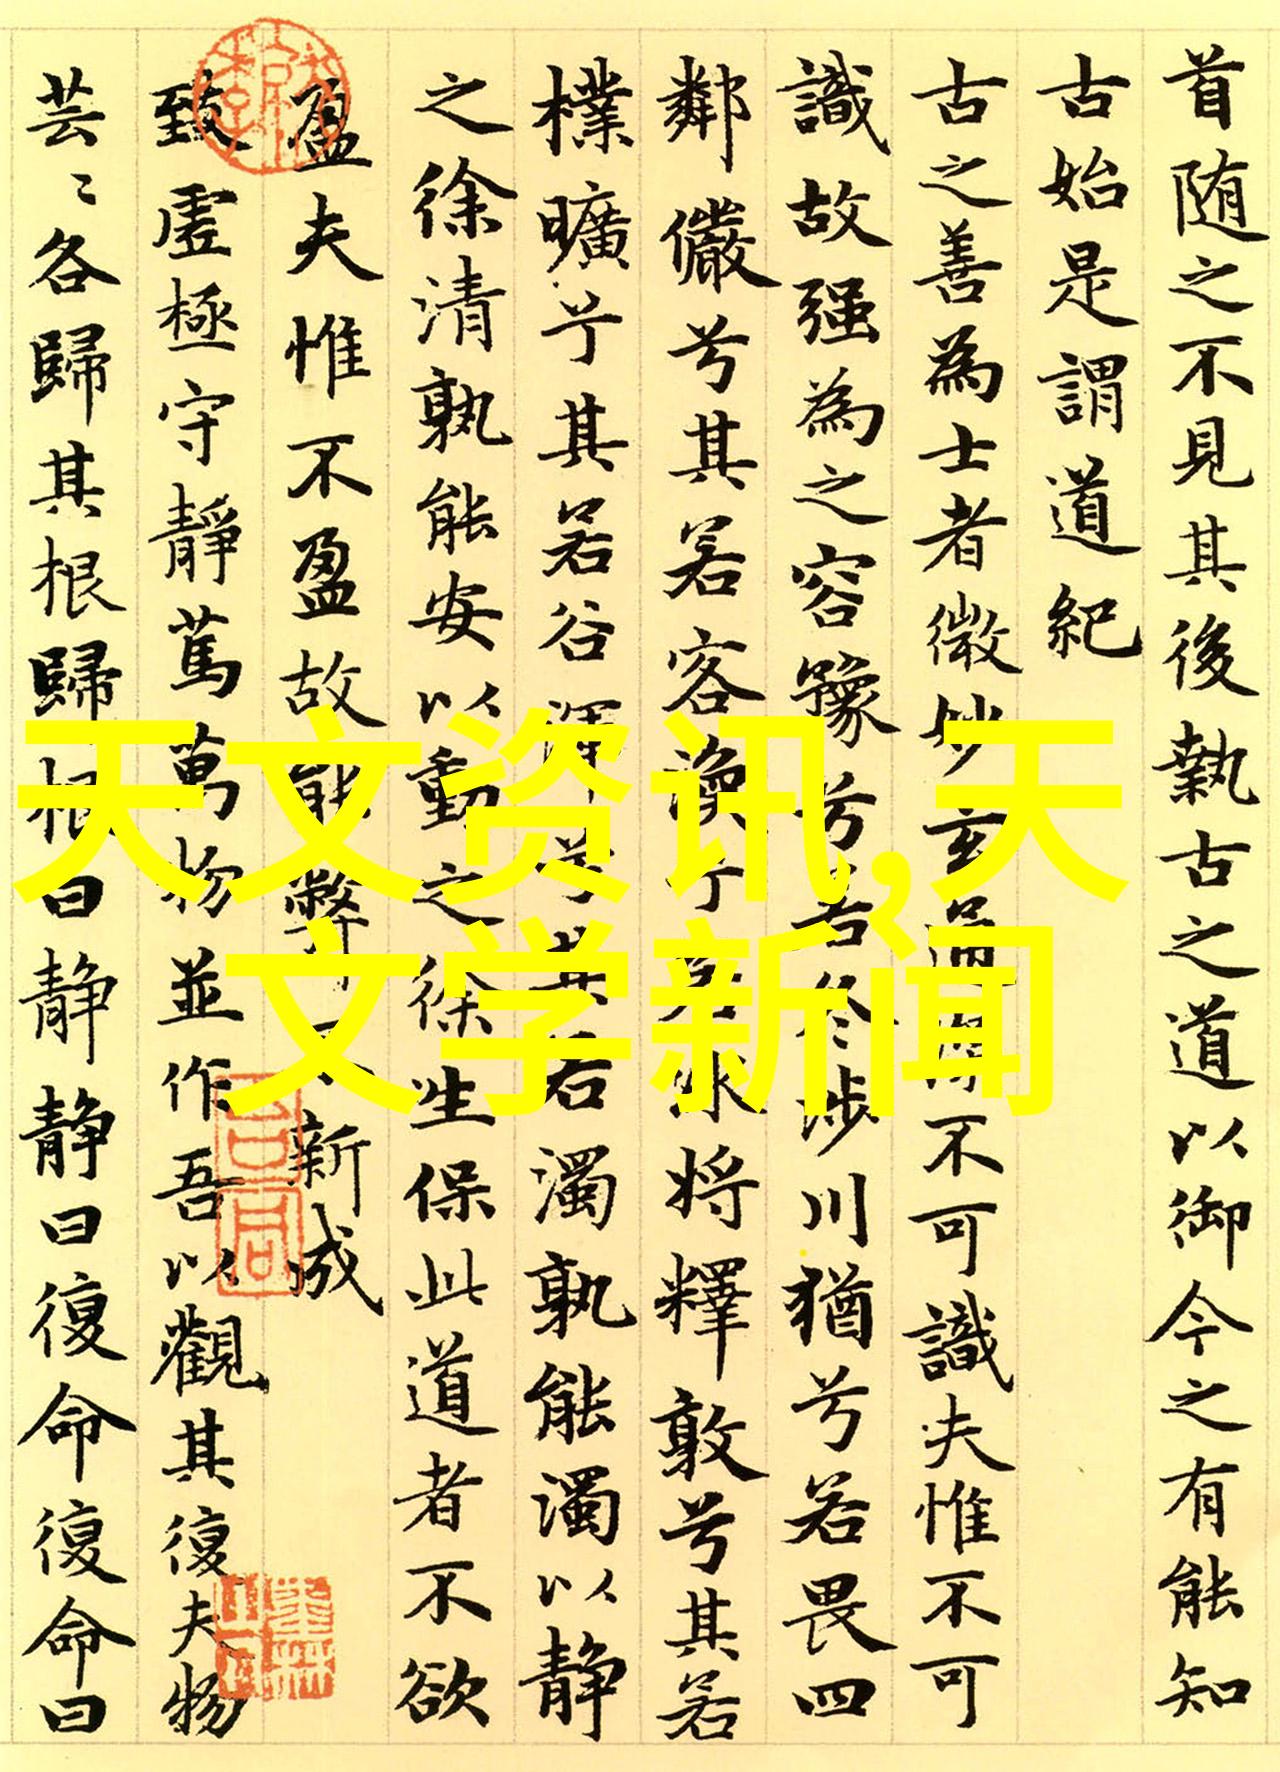 首随之不見其後執古之道以御今之有能知
古始是謂道紀
古之善為士者微妙玄通深不可識夫惟不可
識故强為之容豫兮若冬涉川猶兮若畏四
鄰儼兮其若客渙兮若冰將釋敦兮其若
樸曠兮其若谷渾兮其若濁孰能濁以静
之徐清孰能安以動之徐生保此道者不欲
盈夫惟不盈故能弊不新成
致虚極守靜篤萬物並作吾以觀其復夫物
芸〻各歸其根歸根曰静静曰復命復命曰
天文资讯,天
文学新闻